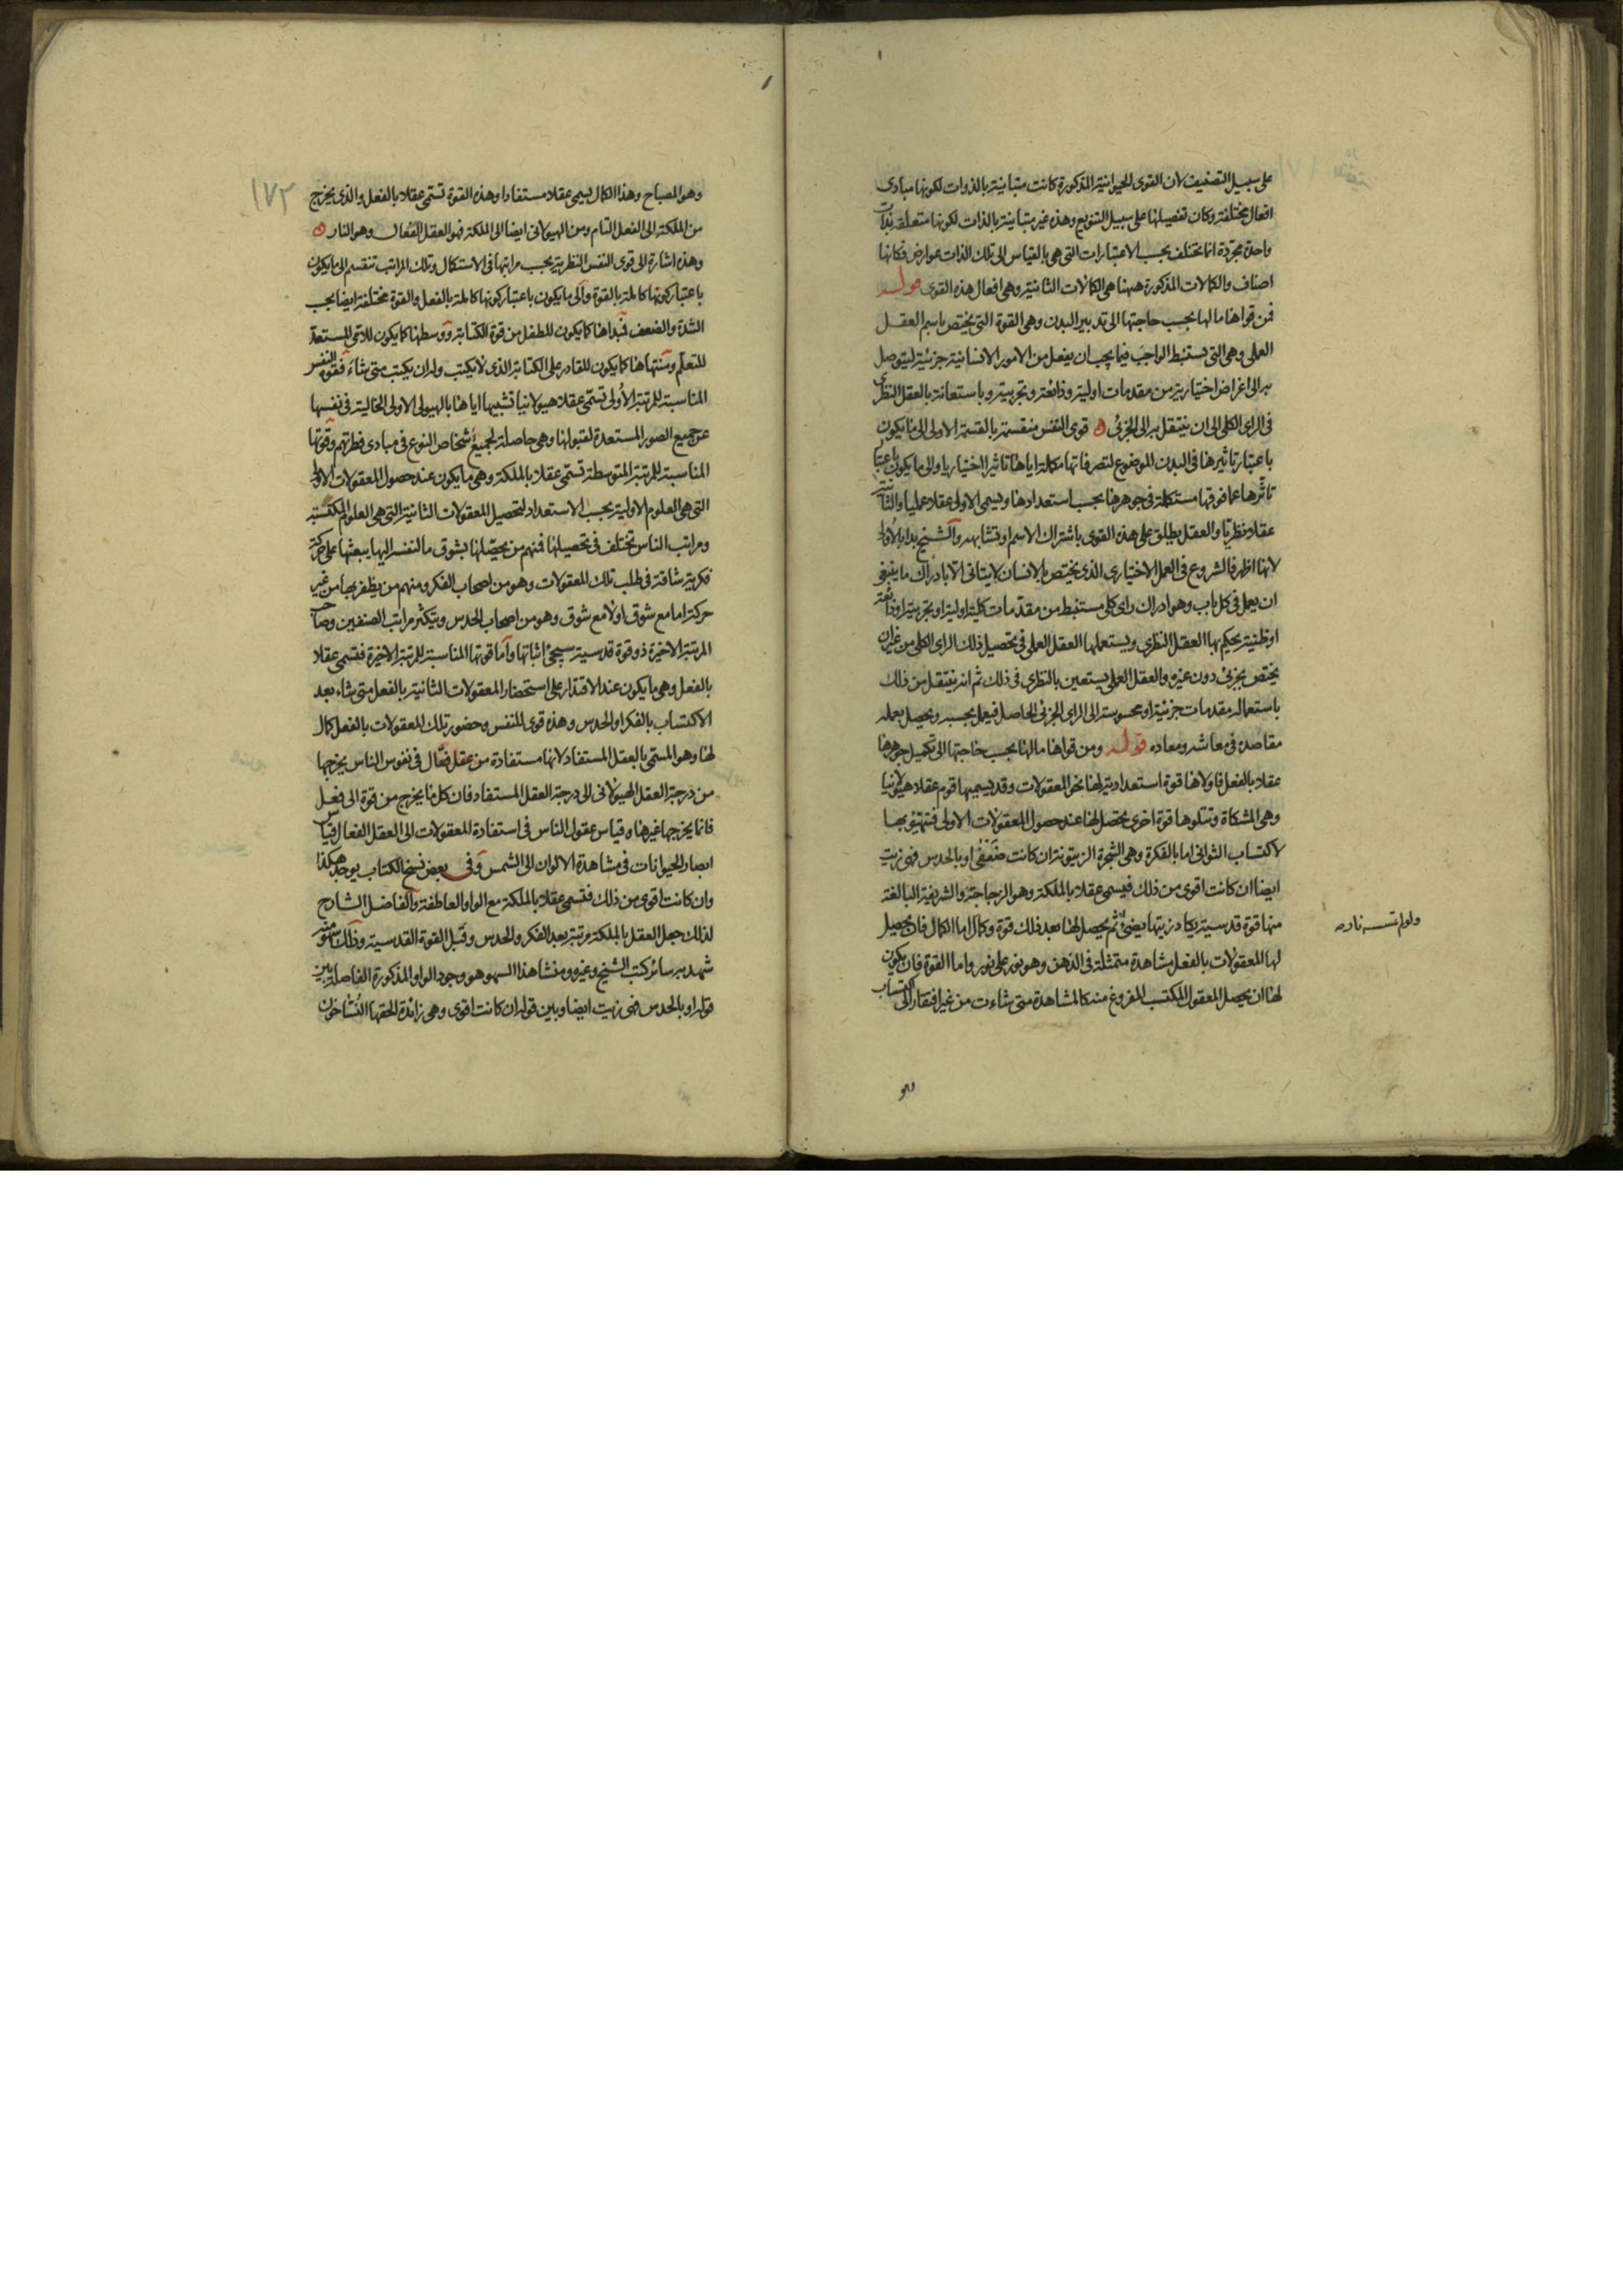 على سبيل التصنيف لان القوى الحيوانية المذكورة كانت متباينة بالذوات لكونها مبادى
افعال مختلفة وكان تفصيلها على سبيل التنويع وهذه غير متباينة بالذات لكونها متعلقة بذات
واحدة مجردة انما تختلف بحسب الاعتبارات التى هى بالقياس الى تلك الذات عوارض فكانها
اصناف والكمالات المذكورة ههنا هى الكمالات الثانية وهى افعال هذه القوى قوله
فمن قواها ما لها بحسب حاجتها الى تدبير البدن وهى القوة التى يختص باسم العقل
العملى وهى التى يستنبط الواجب فيما يجب ان يفعل من الامور الانسانية جزئية ليتوصل
به الى اغراض اختيارية من مقدمات اولية وذائعة وتجربية وباستعانة بالعقل النظرى
فى الراى الكلى الى ان ينتقل به الى الجزئى ه قوى النفس منقسمة بالقسمة الاولى الى ما يكون
باعتبار تاثيرها فى البدن الموضوع لتصرفاتها مكملة اياها تاثيرا اختياريا والى ما يكون باعتبار
تاثرها عما فوقها مستكملة فى جوهرها بحسب استعدادها ويسمى الاولى عقلا عمليا والثانية
عقلا نظريا والعقل يطلق على هذه القوى باشتراك الاسم او تشابهه والشيخ بدا بالاولى
لانها اظهر فالشروع فى العمل الاختيارى الذى يختص بالانسان لا يتاتى الا بادراك ما ينبغى
ان يعمل فى كل باب وهو ادراك راى كلى مستنبط من مقدمات كلية اولية او تجربية او ذائعة
او ظنية يحكم بها العقل النظرى ويستعملها العقل العملى فى تحصيل ذلك الراى الكلى من غير ان
يختص بجزئى دون غيره والعقل العملى يستعين بالنظرى فى ذلك ثم انه ينتقل من ذلك
باستعماله مقدمات جزئية او محسوسة الى الراى الجزئى الحاصل فيعمل بحسبه ويحصل بعمله
مقاصده فى معاشه ومعاده قوله ومن قواها ما لها بحسب حاجتها الى تكميل جوهرها
عقلا بالفعل فاولاها قوة استعدادية لها نحو المعقولات وقد يسميها قوم عقلا هيولانيا
وهى المشكاة وتتلوها قوة اخرى يحصل لها عند حصول المعقولات الاولى فتتهيؤ بها
لاكتساب الثوانى اما بالفكرة وهى الشجرة الزيتونة ان كانت ضعفى او بالحدس فهى زيت
ايضا ان كانت اقوى من ذلك فيسمى عقلا بالملكة وهو الزجاجة والشريفة البالغة
منها قوة قدسية يكاد زيتها يضئ ثم يحصل لها بعد ذلك قوة وكمال اما الكمال فان يحصل
ولو لم تمسسه نار صه
لها المعقولات بالفعل مشاهدة متمثلة فى الذهن وهو نور على نور واما القوة فان يكون
لها ان يحصل المعقول المكتسب المفروغ منه كالمشاهدة متى شاءت من غير افتقار الى اكتساب
وهو
١٧٢
وهو المصباح وهذا الكمال يسمى عقلا مستفادا وهذه القوة تسمى عقلا بالفعل والذى يخرج
من الملكة الى الفعل التام ومن الهيولانى ايضا الى الملكة فهو العقل الفعال وهو النار ه
وهذه اشارة الى قوى النفس النظرية بحسب مراتبها فى الاستكمال وتلك المراتب تنقسم الى ما يكون
باعتبار كونها كاملة بالقوة والى ما يكون باعتبار كونها كاملة بالفعل والقوة مختلفة ايضا بحسب
الشدة والضعف فمبداها كما يكون للطفل من قوة الكتابة ووسطها كما يكون للامى المستعد
للتعلم ومنتهاها كما يكون للقادر على الكتابة الذى لا يكتب وله ان يكتب متى شاء فقوة النفس
المناسبة للمرتبة الاولى تسمى عقلا هيولانيا تشبيها اياها بالهيولى الاولى الخالية فى نفسها
عن جميع الصور المستعدة لقبولها وهى حاصلة لجميع اشخاص النوع فى مبادى فطرتهم وقوتها
المناسبة للمرتبة المتوسطة تسمى عقلا بالملكة وهى ما يكون عند حصول المعقولات الاولى
التى هى العلوم الاولية بحسب الاستعداد لتحصيل المعقولات الثانية التى هى العلوم المكتسبة
ومراتب الناس تختلف فى تحصيلها فمنهم من يحصلها بشوق ما للنفس اليها يبعثها على حركة
فكرية شاقة فى طلب تلك المعقولات وهو من اصحاب الفكر ومنهم من يظفر بها من غير
حركة اما مع شوق او لا مع شوق وهو من اصحاب الحدس ويتكثر مراتب الصنفين وصاحب
المرتبة الاخيرة ذو قوة قدسية سيجئ اثباتها واما قوتها المناسبة للمرتبة الاخيرة فتسمى عقلا
بالفعل وهى ما يكون عند الاقتدار على استحضار المعقولات الثانية بالفعل متى شاء بعد
الاكتساب بالفكر او الحدس وهذه قوى للنفس وحضور تلك المعقولات بالفعل كمال
لها وهو المسمى بالعقل المستفاد لانها مستفادة من عقل فعال فى نفوس الناس يخرجها
من درجة العقل الهيولانى الى درجة العقل المستفاد فان كل ما يخرج من قوة الى فعل
فانما يخرجها غيرها وقياس عقول الناس فى استفادة المعقولات الى العقل الفعال قياس
ابصار الحيوانات فى مشاهدة الالوان الى الشمس وفى بعض نسخ الكتاب يوجد هكذا
وان كانت اقوى من ذلك فتسمى عقلا بالملكة مع الواو العاطفة والفاضل الشارح
لذلك جعل العقل بالملكة مرتبة بعد الفكر والحدس وقبل القوة القدسية وذلك سهو
شهد به سائر كتب الشيخ وغيره ومنشا هذا السهو هو وجود الواو المذكورة الفاصلة بين
قوله او بالحدس فهى زيت ايضا وبين قوله ان كانت اقوى وهى زائدة الحقها الناسخون